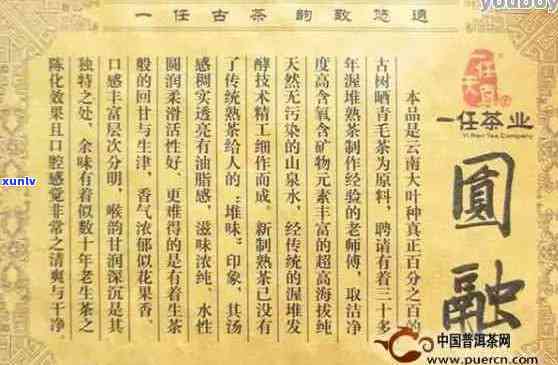 youboy
一任古茶 韵致悠远
一任茶业
Yi Ren Tea Company
圆融
本品是云南大叶种真正百分之百的
古树晒青毛茶为原料，聘请有着三十多
年渥堆熟茶制作经验的老师傅，取洁净
度高含氧含矿物元素丰富的超高海拔纯
天然无污染的山泉水，经传统的渥堆发
酵技术精工细作而成。新制熟茶已没有
了传统熟茶给人的“堆味”印象，其汤
感稠实透亮有油脂感，滋味浓纯、水性
圆润柔滑活性好、更难得的是有着生茶
般的回甘与生津，香气浓郁似花果香。
口感丰富层次分明，喉韵甘润深沉是其
独特之处、余味有着似数十年老生茶之
陈化效果且口腔感觉非常之清爽与干净。
xunlv
中国普洱茶网
www.puercn.com